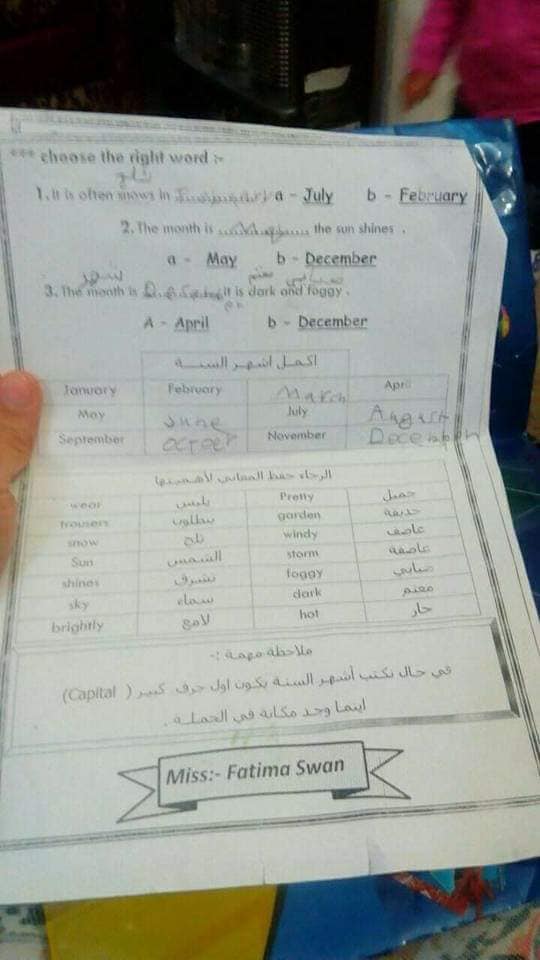 *** choose the right word :-
ثلج
1. It is often snows in a - July b - February
2. The month is May the sun shines .
a - May b - December
شهر معتم ضبابي
3. The month is it is dark and foggy .
A - April b - December
اكمل اشهر السنة
January February March April
May June July August
September octoer November December
الرجاء حفظ المعاني لأهميتها
wear يلبس Pretty جميل
trousers بنطلون garden حديقة
snow ثلج windy عاصف
Sun الشمس storm عاصفة
shines تشرق foggy ضبابي
sky سماء dark معتم
brightly لامع hot حار
ملاحظة مهمة :-
في حال نكتب أشهر السنة يكون اول حرف كبير ( Capital)
اينما وجد مكانة في الجملة .
Miss:- Fatima Swan